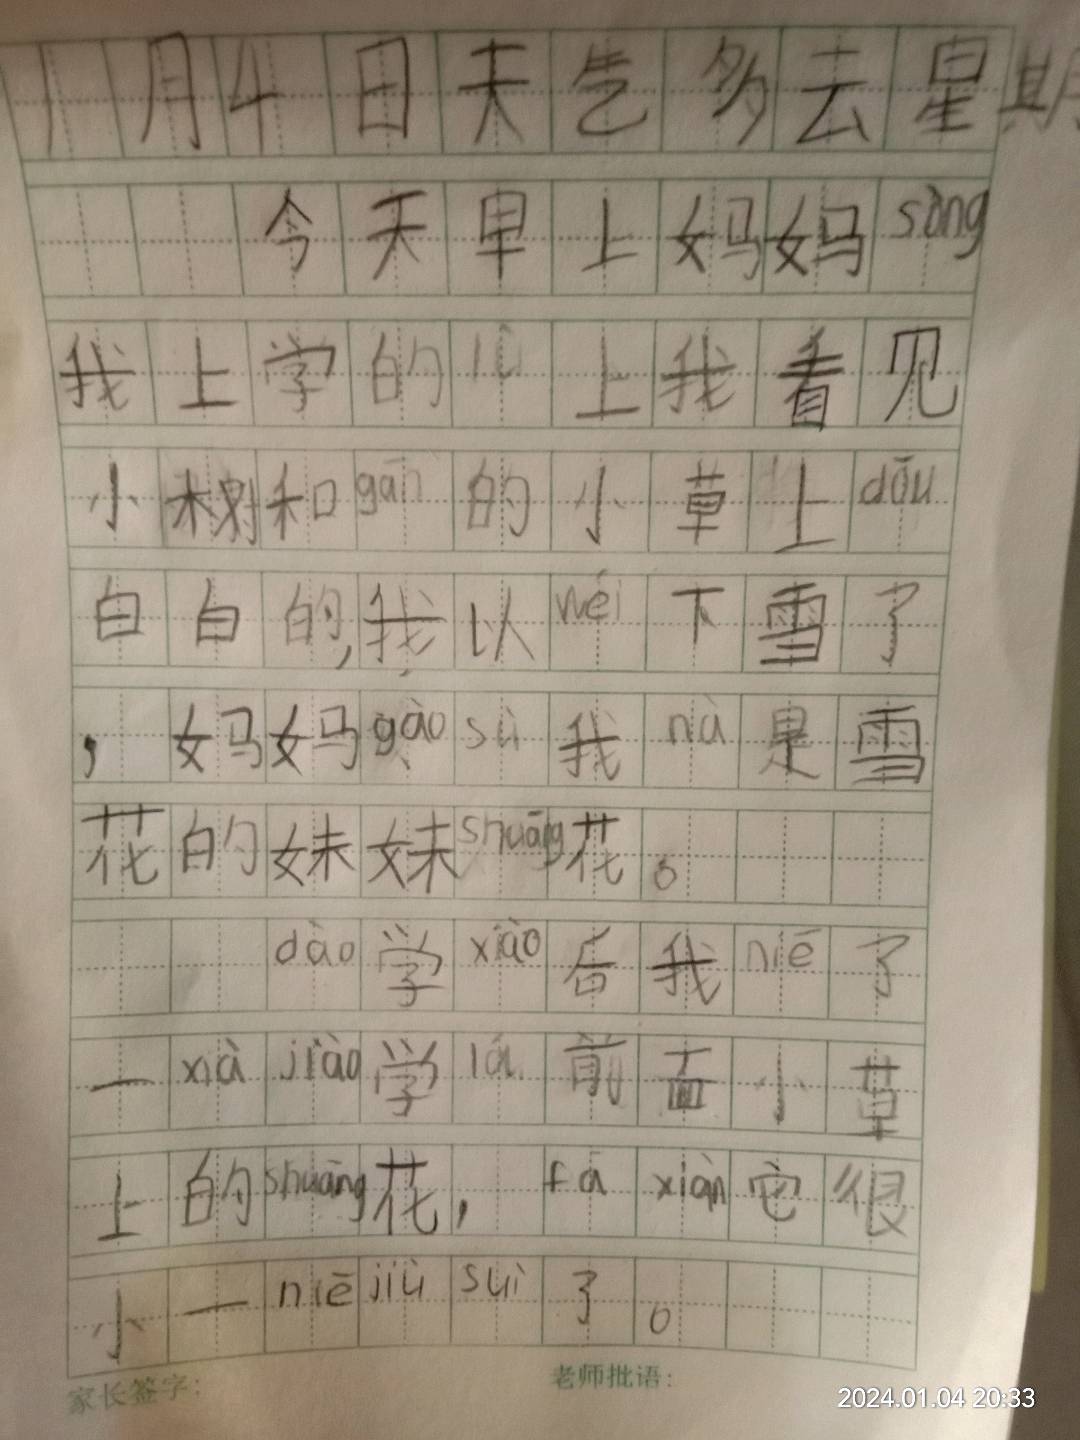 1月4日天气多云星期
今天早上妈妈sòng
我上学的lù上我看见
小树和gān的小草上dōu
白白的,我以wéi下雪了
,妈妈妈gào sù我nà是雪
花的妹妹shuāng花。
dào学xiào后我niē了
一xià jiào学lóu前面小草
上的shuāng花,fā xiàn它很
小一niē jiù suì了。
家长签字: 老师批语:
2024.01.04 20:33